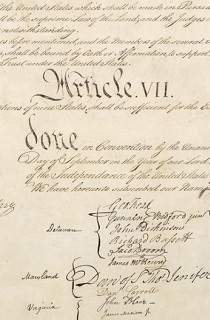 the United States which shall be made in Pursu
be the supreme Law of the Land; and the Judges
notwithstanding.
before mentioned, and the Members of the several
shall be bound by Oath or Affirmation, to support
Trust under the United States.
Article. VII.
tions of nine States, shall be sufficient for the E
done in Convention by the Unani
Day of September in the Year of our Lord
of the Independance of the United States
We have hereunto subscribed our Names,
Delaware
Geo: Read
Gunning Bedford jun
John Dickinson
Richard Bassett
Jaco: Broom
Maryland
James McHenry
Dan of St Thos Jenifer
Danl Carroll
Virginia
John Blair
James Madison Jr